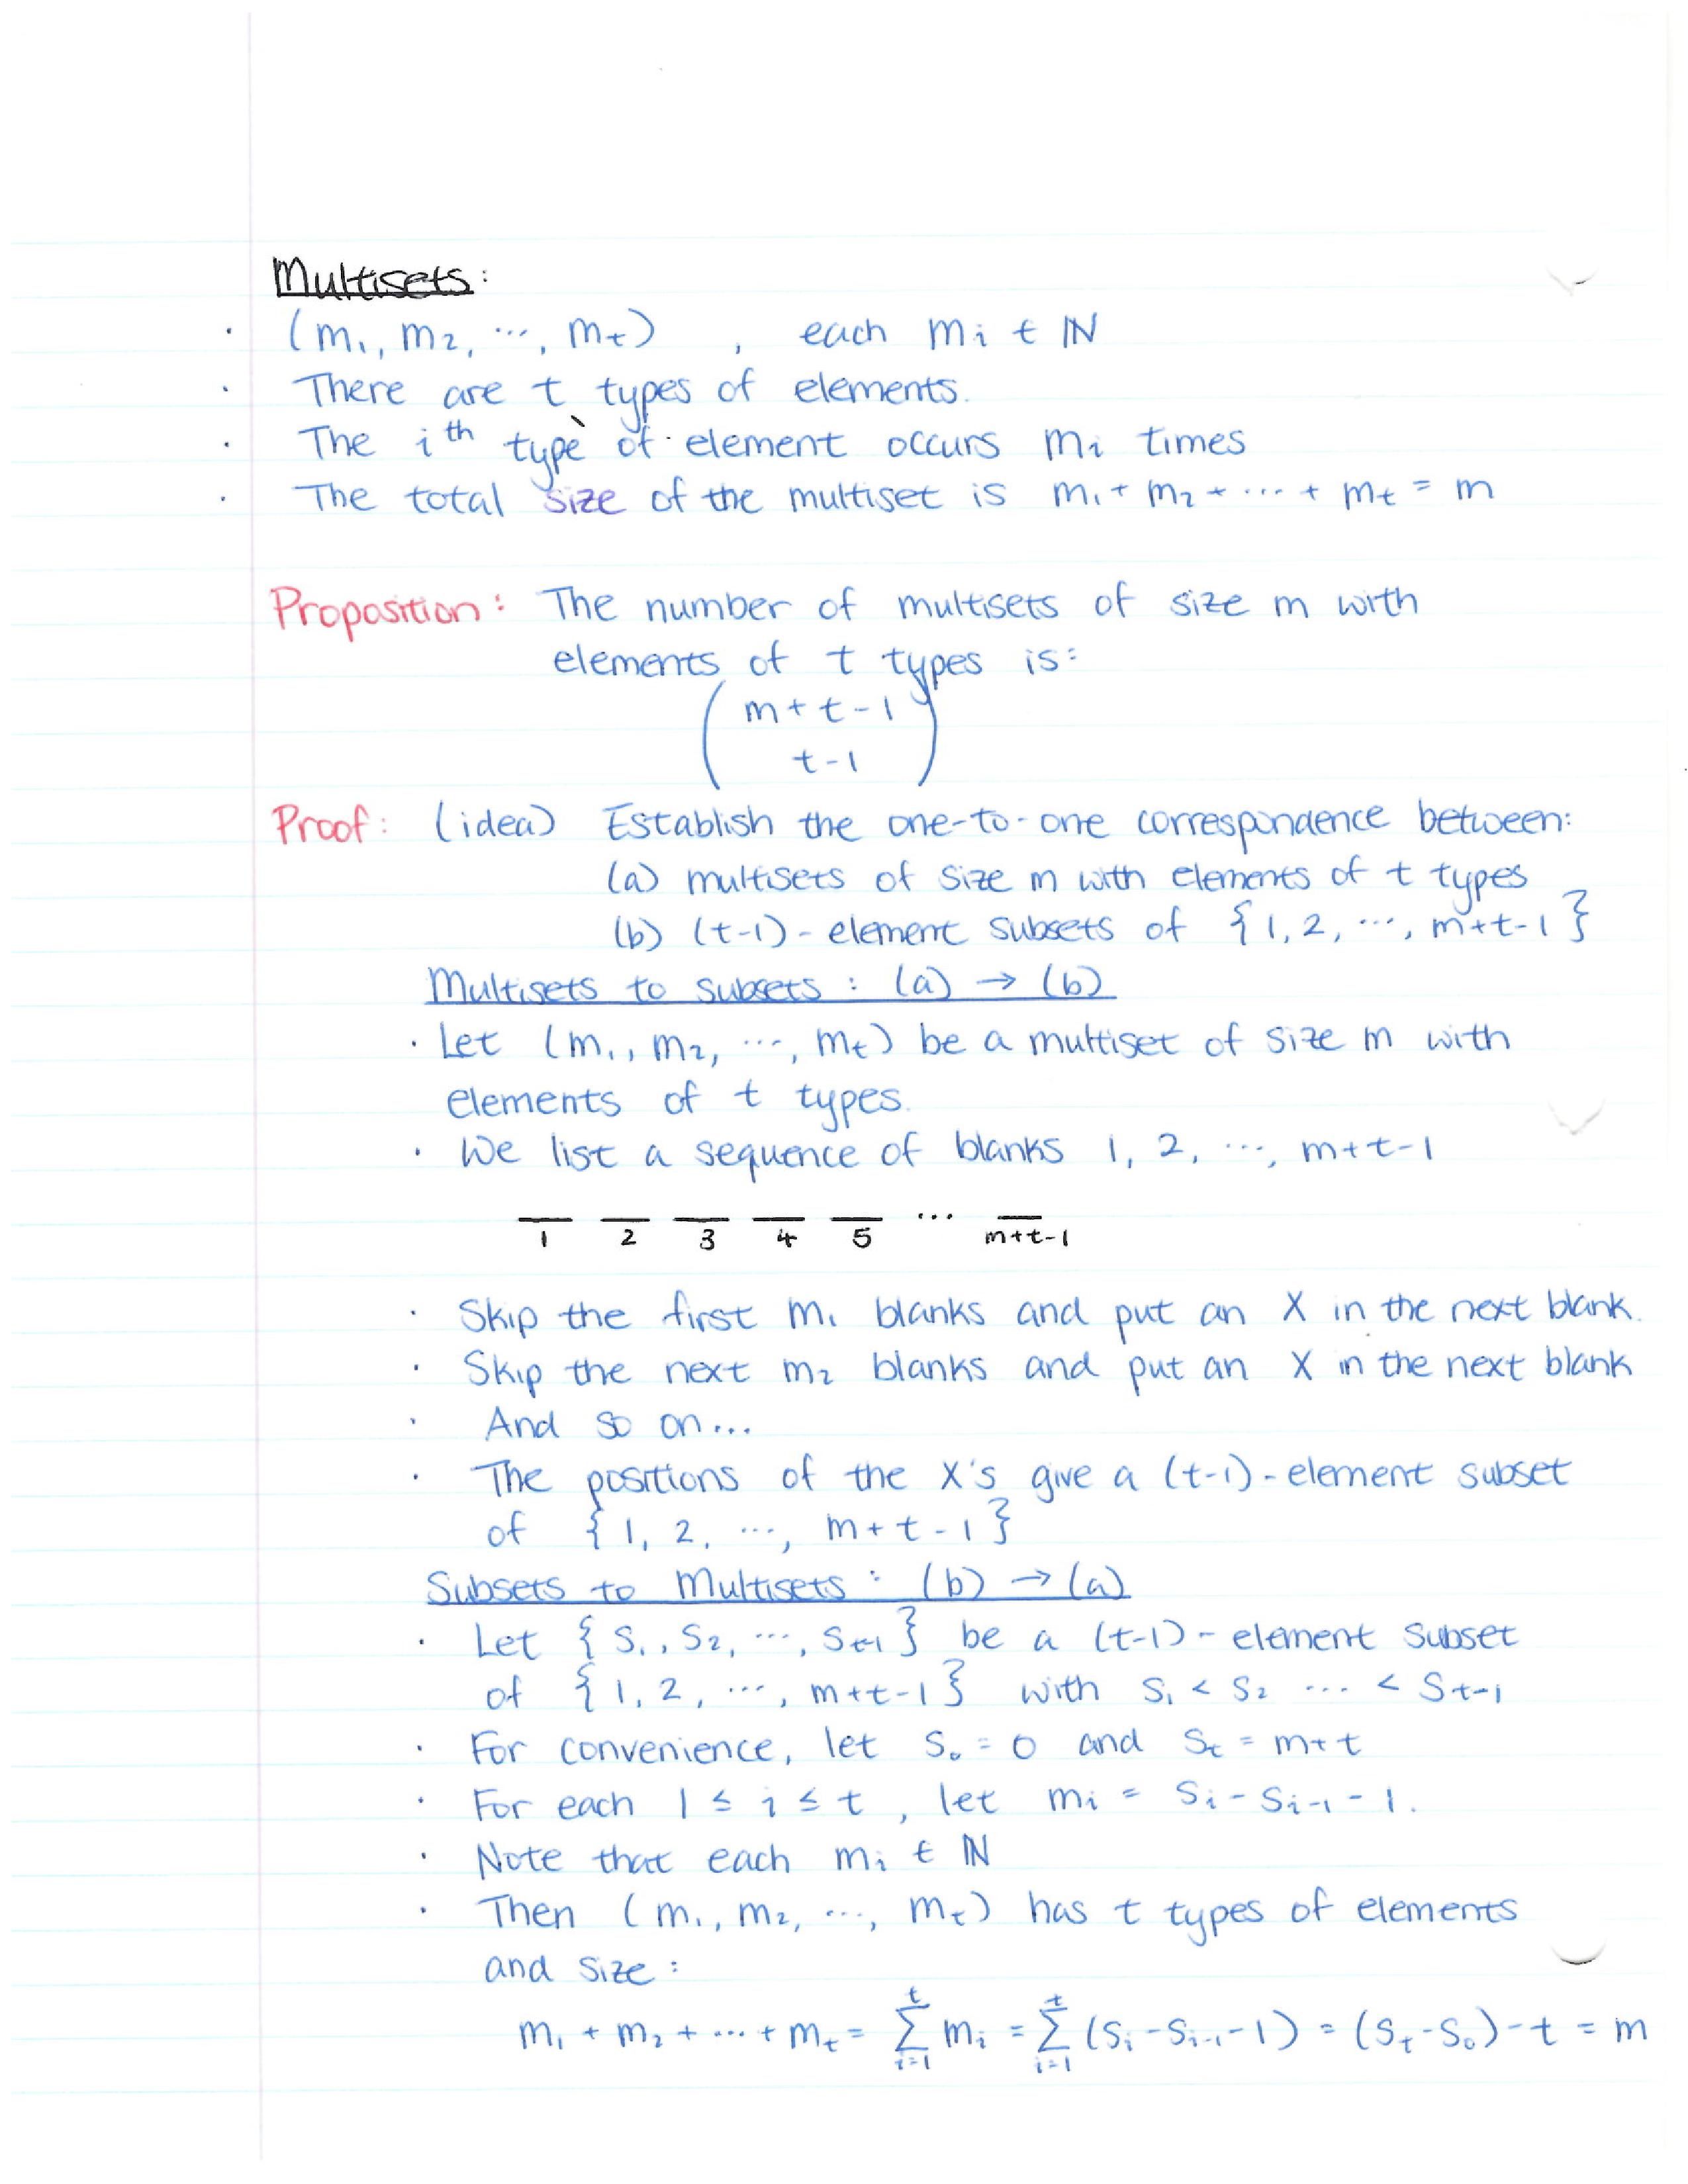 Multisets:
· (m₁, m₂, ..., mₜ) , each mᵢ ∈ ℕ
· There are t types of elements.
· The iᵗʰ type of element occurs mᵢ times
· The total size of the multiset is m₁ + m₂ + ... + mₜ = m
Proposition: The number of multisets of size m with
elements of t types is:
(m+t-1
t-1)
Proof: (idea) Establish the one-to-one correspondence between:
(a) multisets of size m with elements of t types
(b) (t-1)-element subsets of {1, 2, ..., m+t-1}
Multisets to subsets: (a) → (b)
· Let (m₁, m₂, ..., mₜ) be a multiset of size m with
elements of t types.
· We list a sequence of blanks 1, 2, ..., m+t-1
_ _ _ _ _ ... _
1 2 3 4 5 m+t-1
· Skip the first m₁ blanks and put an X in the next blank.
· Skip the next m₂ blanks and put an X in the next blank
· And so on...
· The positions of the X's give a (t-1)-element subset
of {1, 2, ..., m+t-1}
Subsets to Multisets: (b) → (a)
· Let {s₁, s₂, ..., sₜ₋₁} be a (t-1)-element subset
of {1, 2, ..., m+t-1} with s₁ < s₂ ... < sₜ₋₁
· For convenience, let s₀ = 0 and sₜ = m+t
· For each 1 ≤ i ≤ t, let mᵢ = sᵢ - sᵢ₋₁ - 1.
· Note that each mᵢ ∈ ℕ
· Then (m₁, m₂, ..., mₜ) has t types of elements
and size:
m₁ + m₂ + ... + mₜ = ∑ᵢ₌₁ᵗ mᵢ = ∑ᵢ₌₁ᵗ (sᵢ - sᵢ₋₁ - 1) = (sₜ - s₀) - t = m